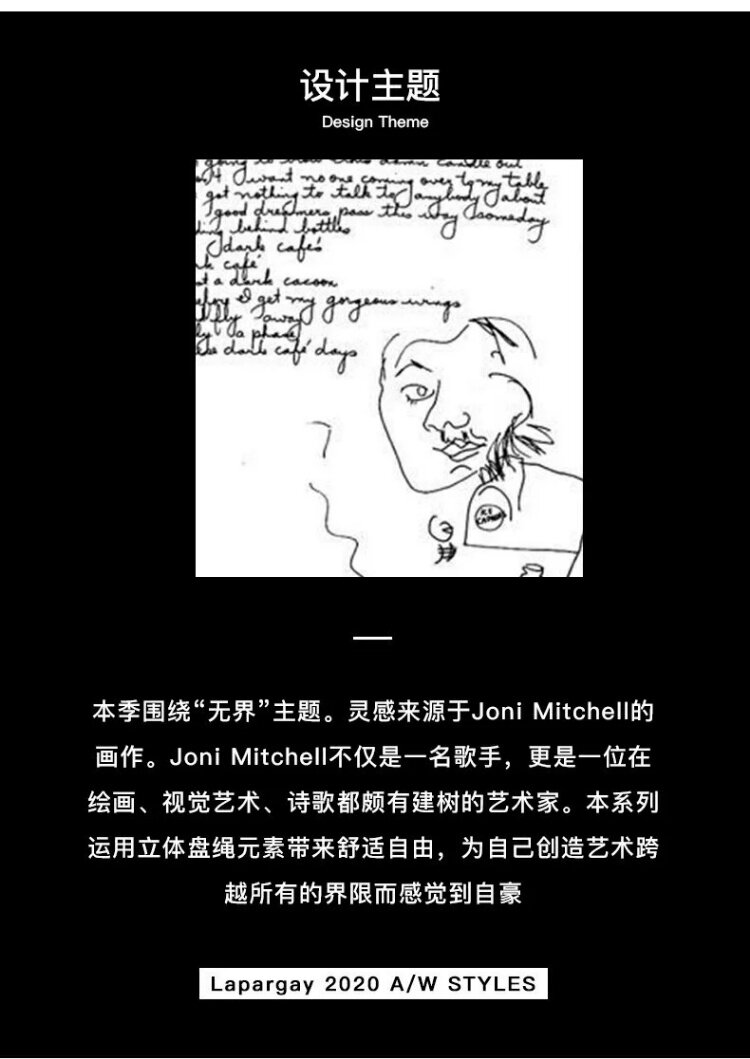 设计主题
Design Theme
going to blow this damn candle out
I want no one coming over to my table
got nothing to talk to anybody about
good dreamers pass this way someday
behind bottles
dark cafés
café
a dark cocoon
I get my gorgeous wings
fly away
a phase
dark café days
本季围绕“无界”主题。灵感来源于Joni Mitchell的
画作。Joni Mitchell不仅是一名歌手，更是一位在
绘画、视觉艺术、诗歌都颇有建树的艺术家。本系列
运用立体盘绳元素带来舒适自由，为自己创造艺术跨
越所有的界限而感觉到自豪
Lapargay 2020 A/W STYLES